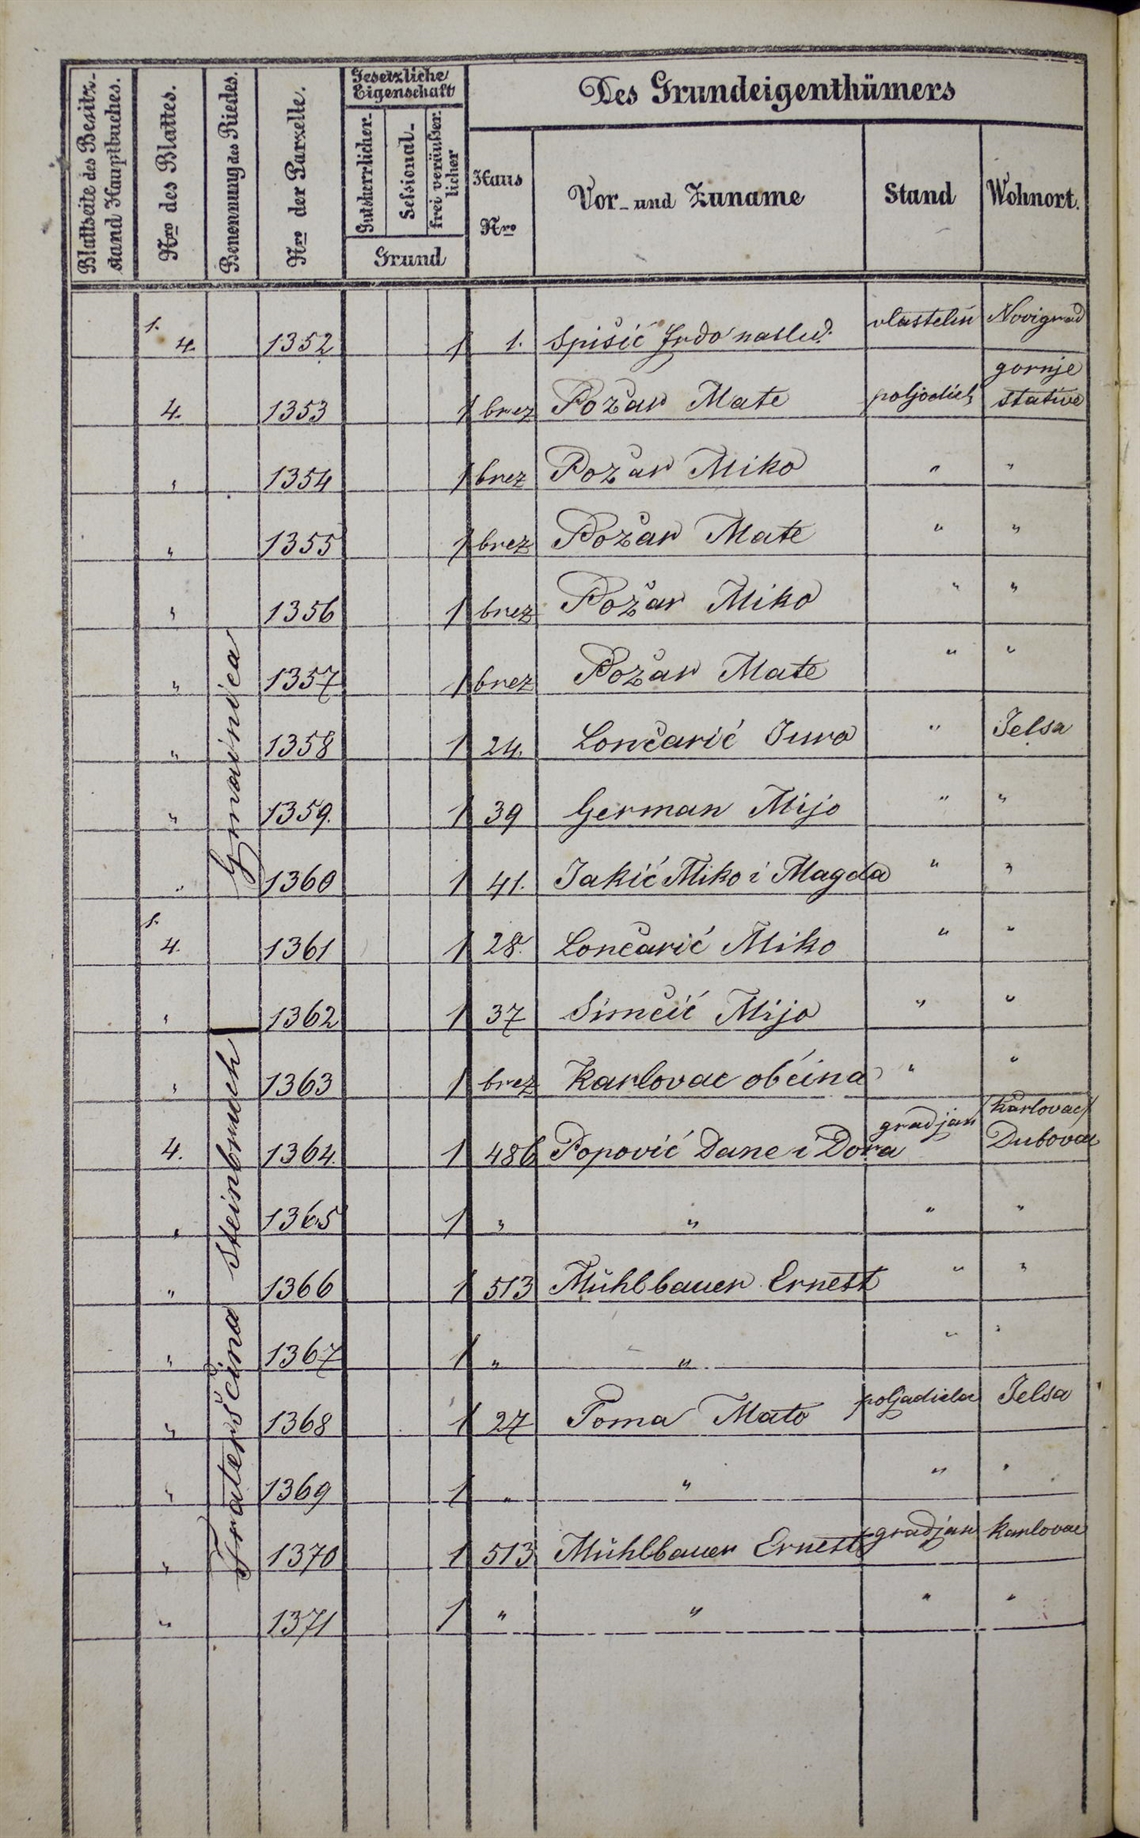 Blattseite des Besitz-
stand Hauptbuches.
Nro des Blattes.
Benennung des Riedes.
Nro der Parzelle.
Gesetzliche
Eigenschaft
Gutsherrlicher
Sessional-
frei veräußer
licher
Grund
Des Grundeigenthümers
Haus
Nro
Vor- und Zuname
Stand
Wohnort.
Gmainica
Fraterščina steinbruch
1. 4. 1352 1 1. Spišić naslied. vlastelin Novigrad
4. 1353 1 brez Požar Mate gornje stative
" 1354 1 brez Požar Miko " "
" 1355 1 brez Požar Mate " "
" 1356 1 brez Požar Miko " "
" 1357 1 brez Požar Mate " "
" 1358 1 24. Lončarić Jura " Jelsa
" 1359. 1 39 German Mijo " "
" 1360 1 41. Jakić Miko i Magda " "
1. 4. 1361 1 28. Lončarić Miko " "
" 1362 1 37 Simčić Mijo " "
" 1363 1 brez Karlovac obćina " "
4. 1364. 1 486 Popović Dane i Dora gradjan Karlovac/ Dubovac
" 1365 1 " " " "
" 1366 1 513 Mühlbauer Ernest " "
" 1367 1 " " " "
" 1368 1 27 Toma Mato Jelsa
" 1369 1 " " " "
" 1370 1 513 Mühlbauer Ernest gradjan Karlovac
" 1371 1 " " " "